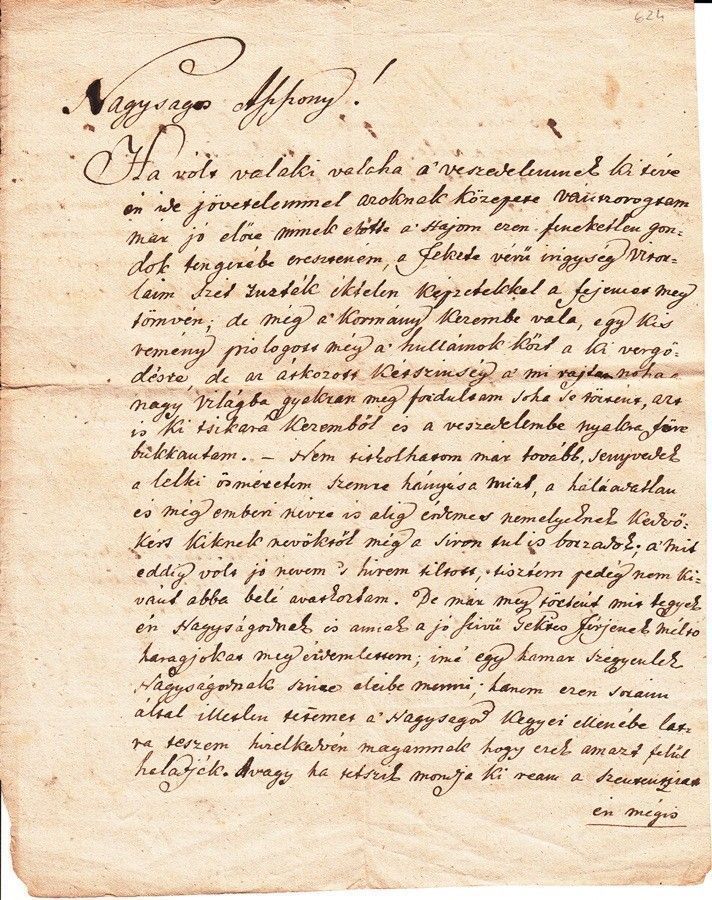 624
Nagyságos Asszony!
Ha volt valaki valaha a' veszedelemnek ki téve
én ide jövetelemmel azoknak közepette vánszorogtam
már jó előre minek előtte a' Hajóm ezen feneketlen gon-
dok tengerébe ereszteném, a fekete vérű irigység vitor-
láim szet húzták éktelen képzetekkel a fejemet meg
tömvén; de még a' Kormány kezembe vala, egy kis
remény pislogott még a' hullámok közt a ki vergő-
désre de az átkozott kétszínűség a' mi rajtam noha
nagy világba gyakran meg fordultam soha se történt, azt
is ki tsikará kezemből és a veszedelembe nyakra főre
bukkantam. – Nem titkolhatom már tovább, senyvedek
a lelki ösméretem szemre hányása miat, a háláadatlan
és még emberi névre is alig érdemes némelyeknek kedvö-
kért kiknek nevöktől még a síron túl is borzadok; a' mit
eddig volt jó nevem 's hírem tiltott, tisztem pedég nem ki-
vánt abba belé avatkoztam. De már meg történt mit tegyek
én Nagyságodnak is annak a jó szívű Tekttes Férjének méltó
haragjokat meg érdemlettem; imé egy hamar szégyenlek
Nagyságodnak színe eleibe menni; hanem ezen soraim
által illetlen tettemet a' Nagyságod Kegyei ellenébe lat-
ra teszem hizelkedvén magamnak hogy ezek amazt felül
haladják. Avagy ha tetszik mondja ki reám a szententziát
én mégis